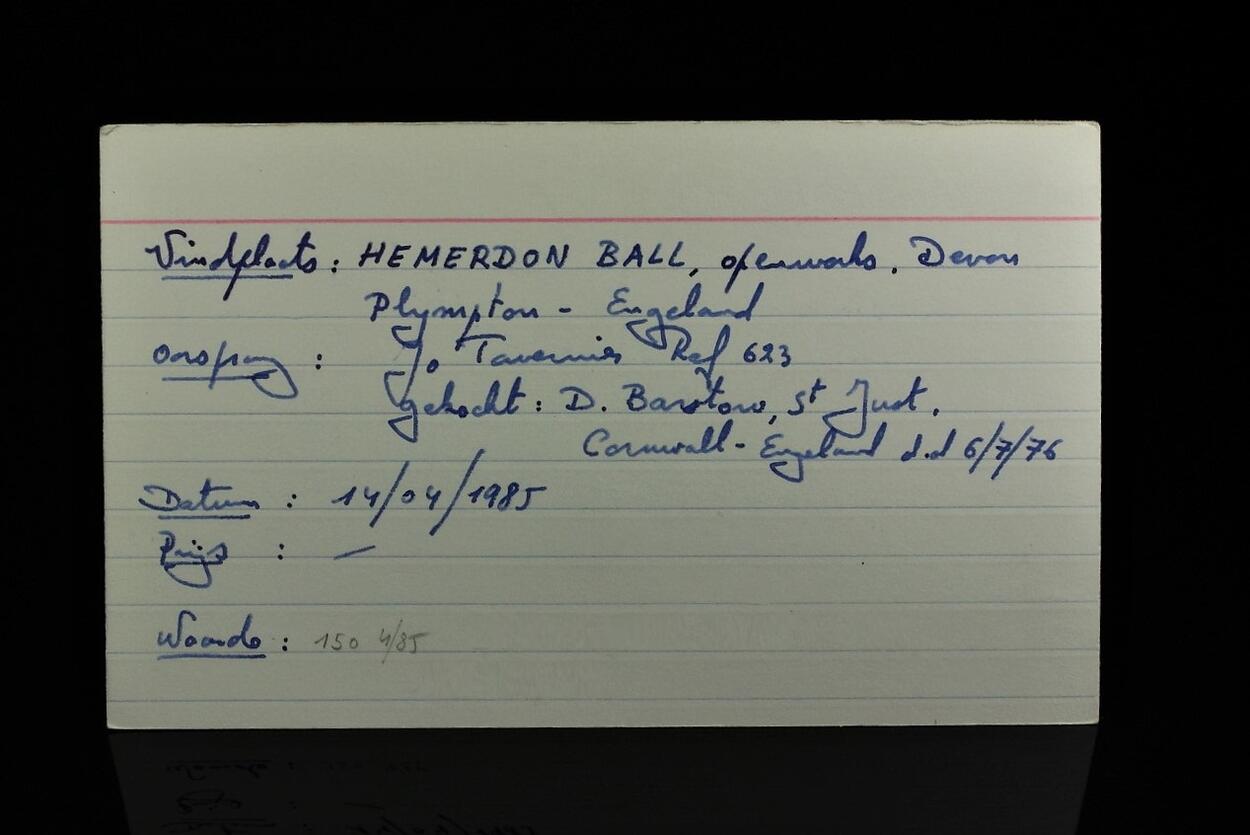 Vindplaats : HEMERDON BALL, openworks, Devon
Plympton - Engeland
Oorsprong : Jo Tavernier Ref 623
gekocht : D. Barstow, St Just,
Cornwall - Engeland d.d 6/7/76
Datum : 14/04/1985
Prijs : —
Waarde : 150 4/85